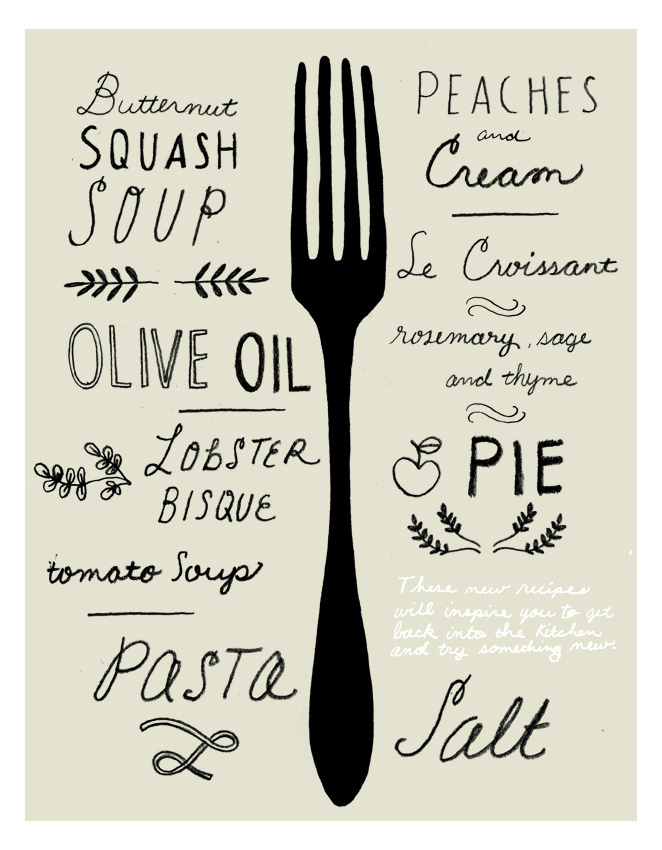 Butternut
SQUASH
SOUP
OLIVE OIL
LOBSTER
BISQUE
tomato Soup
PASTA
PEACHES
and
Cream
Le Croissant
rosemary, sage
and thyme
PIE
These new recipes
will inspire you to get
back into the kitchen
and try something new!
Salt